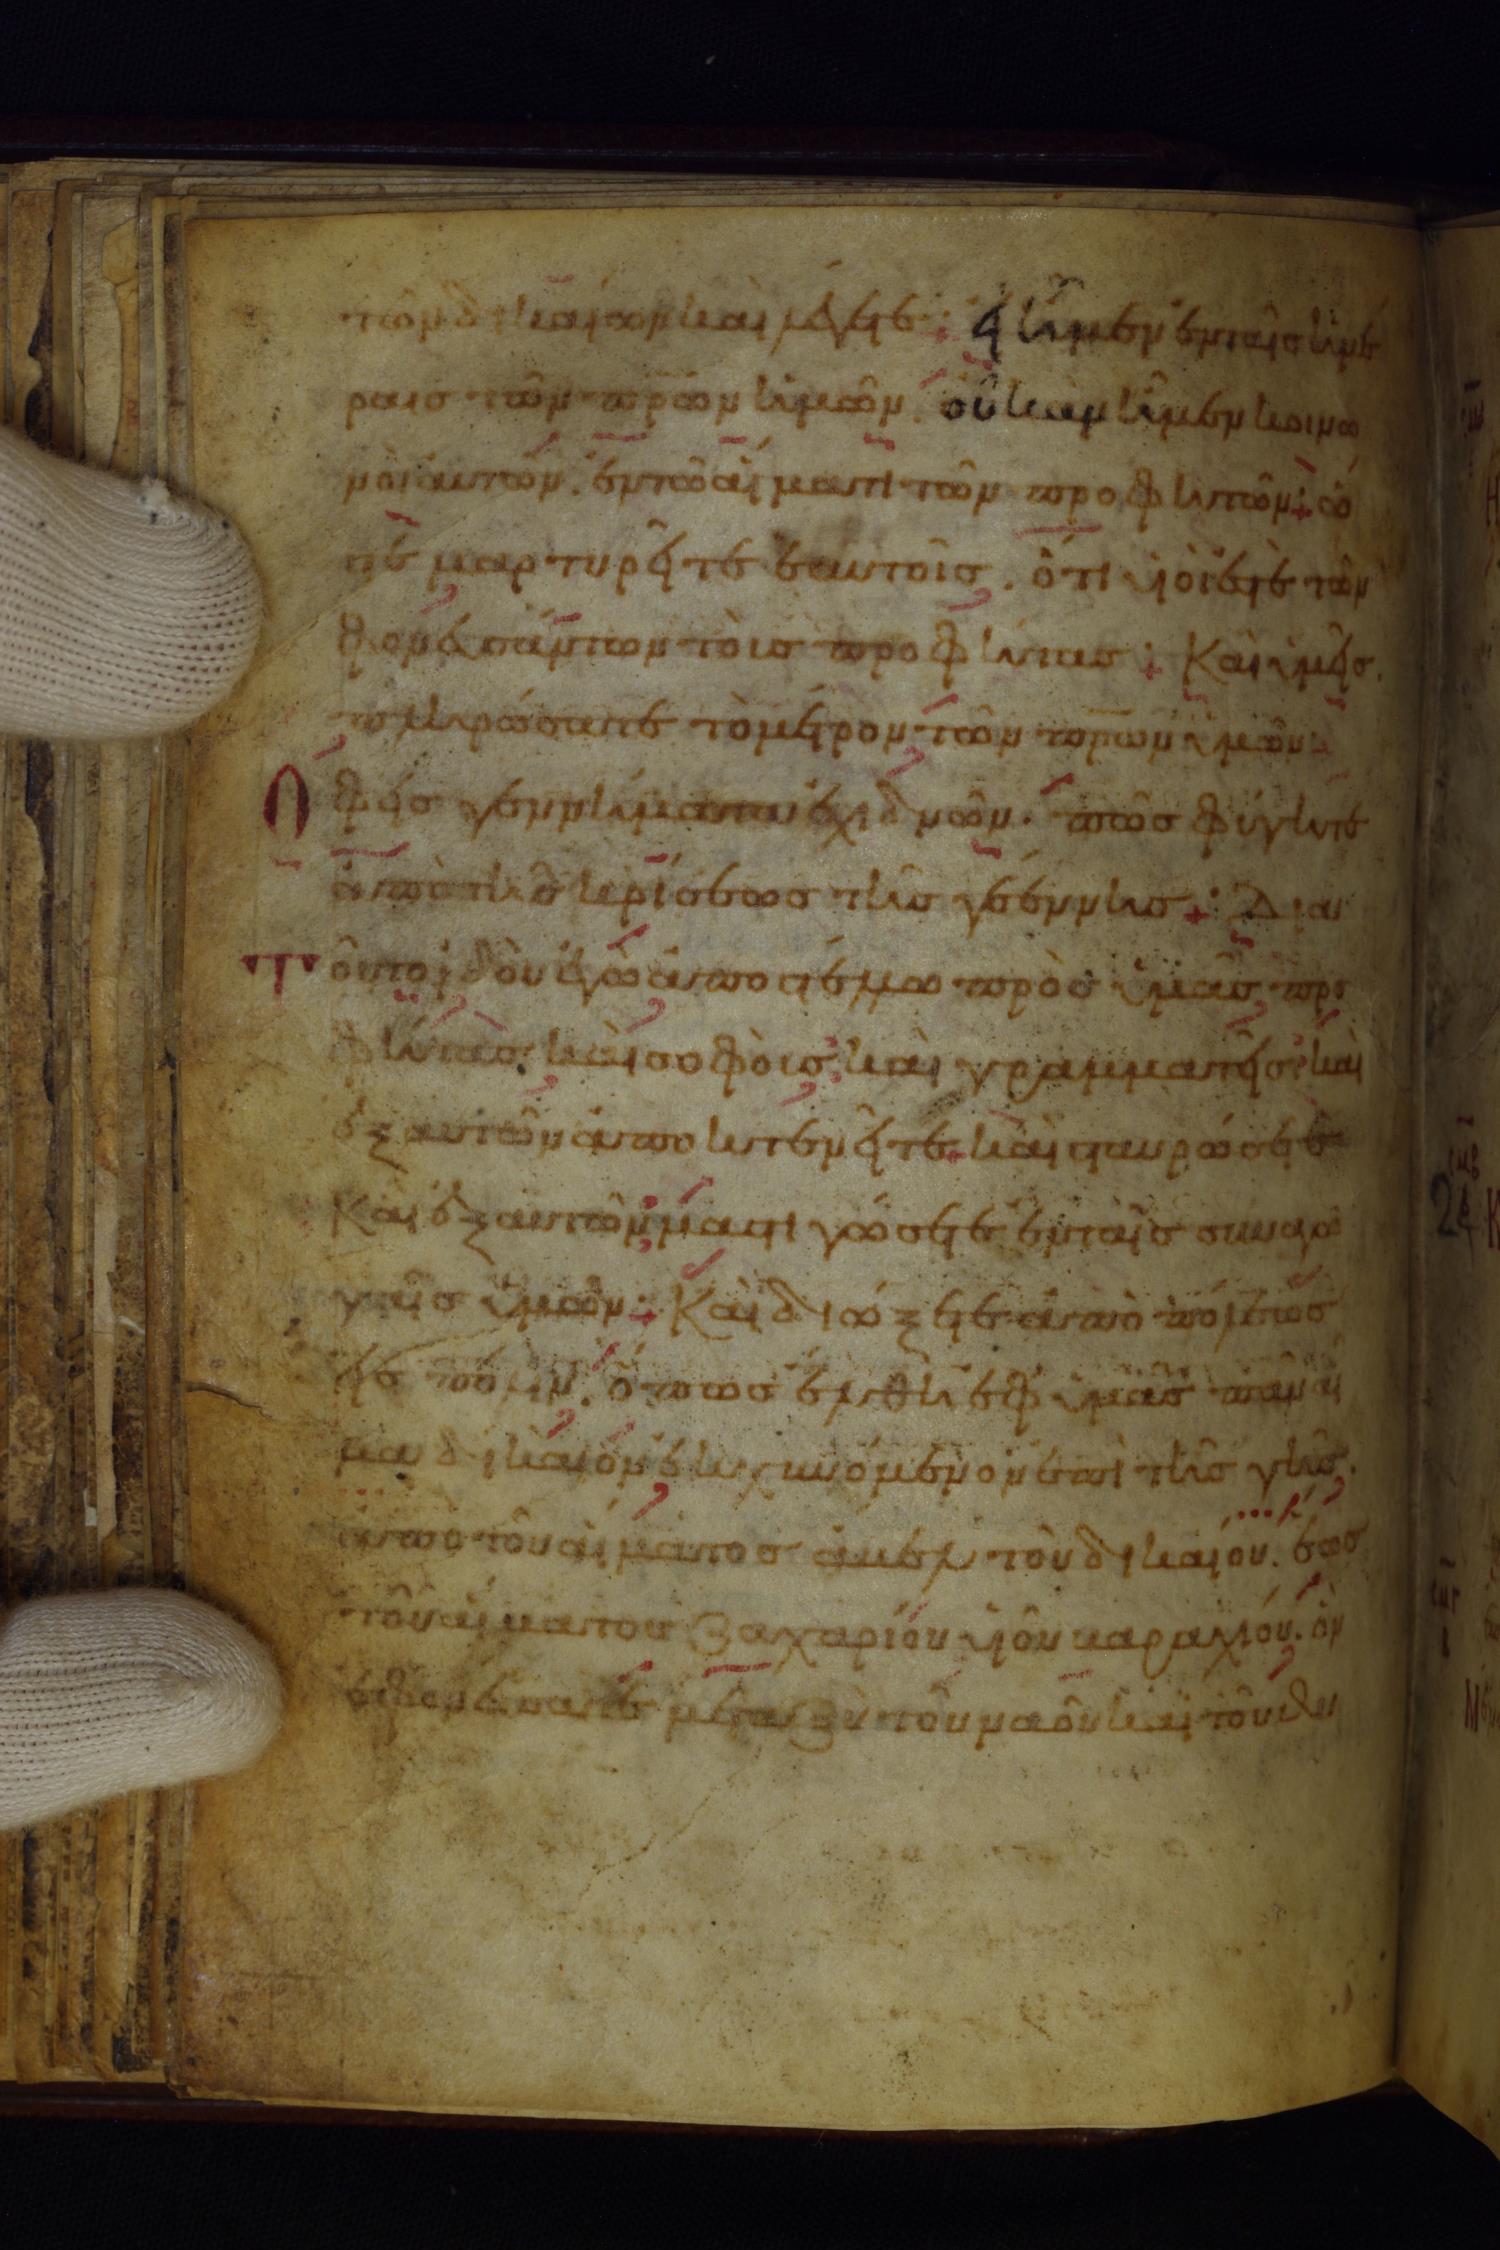 τῶν δικαίων καὶ λέγετε· εἰ ἦμεν ἐν ταῖς ἡμέ
ραις τῶν πρων ἡμῶν. οὐκ ἀν ἦμεν κοινω
νοὶ αυτῶν. ἐν τῶ αἵματι τῶν προφητῶν· ὥ
στε μαρτυρεῖτε ἑαυτοῖς. ὅτι ὑοί ἐστε τῶν
φονευσάντων τοὺς προφήτας· Καὶ ὑμεῖς.
πληρώσατε τὸ μέτρον τῶν πρων ὑμῶν
Ο φεις γεννήματα ἐχιδνῶν. πῶς φύγητε
ἀπὸ τῆς κρίσεως τῆς γεέννης· Δια
Τ οῦτο ἰδοὺ ἐγὼ ἀποστέλλω πρὸς ὑμᾶς προ
φήτας καὶ σοφοὺς καὶ γραμματεῖς καὶ
ἐξ αυτῶν ἀποκτενεῖτε καὶ σταυρώσετε
Καὶ ἐξ αυτῶν μαστιγώσετε ἐν ταῖς συναγω
γαῖς ὑμῶν· Καὶ διώξετε ἀπὸ πόλεως
εἰς πόλιν. ὅπως ἔλθη ἐφ ὑμᾶς πᾶν αἷ
μα δίκαιον ἐκχυνόμενον ἐπὶ τῆς γῆς.
ἀπὸ τοῦ αἵματος ἄβελ τοῦ δικαίου. ἕως
τοῦ αἵματος Ζαχαρίου ὑιοῦ βαραχίου. ὃν
ἐφονεύσατε μεταξὺ τοῦ ναοῦ καὶ τοῦ θυ